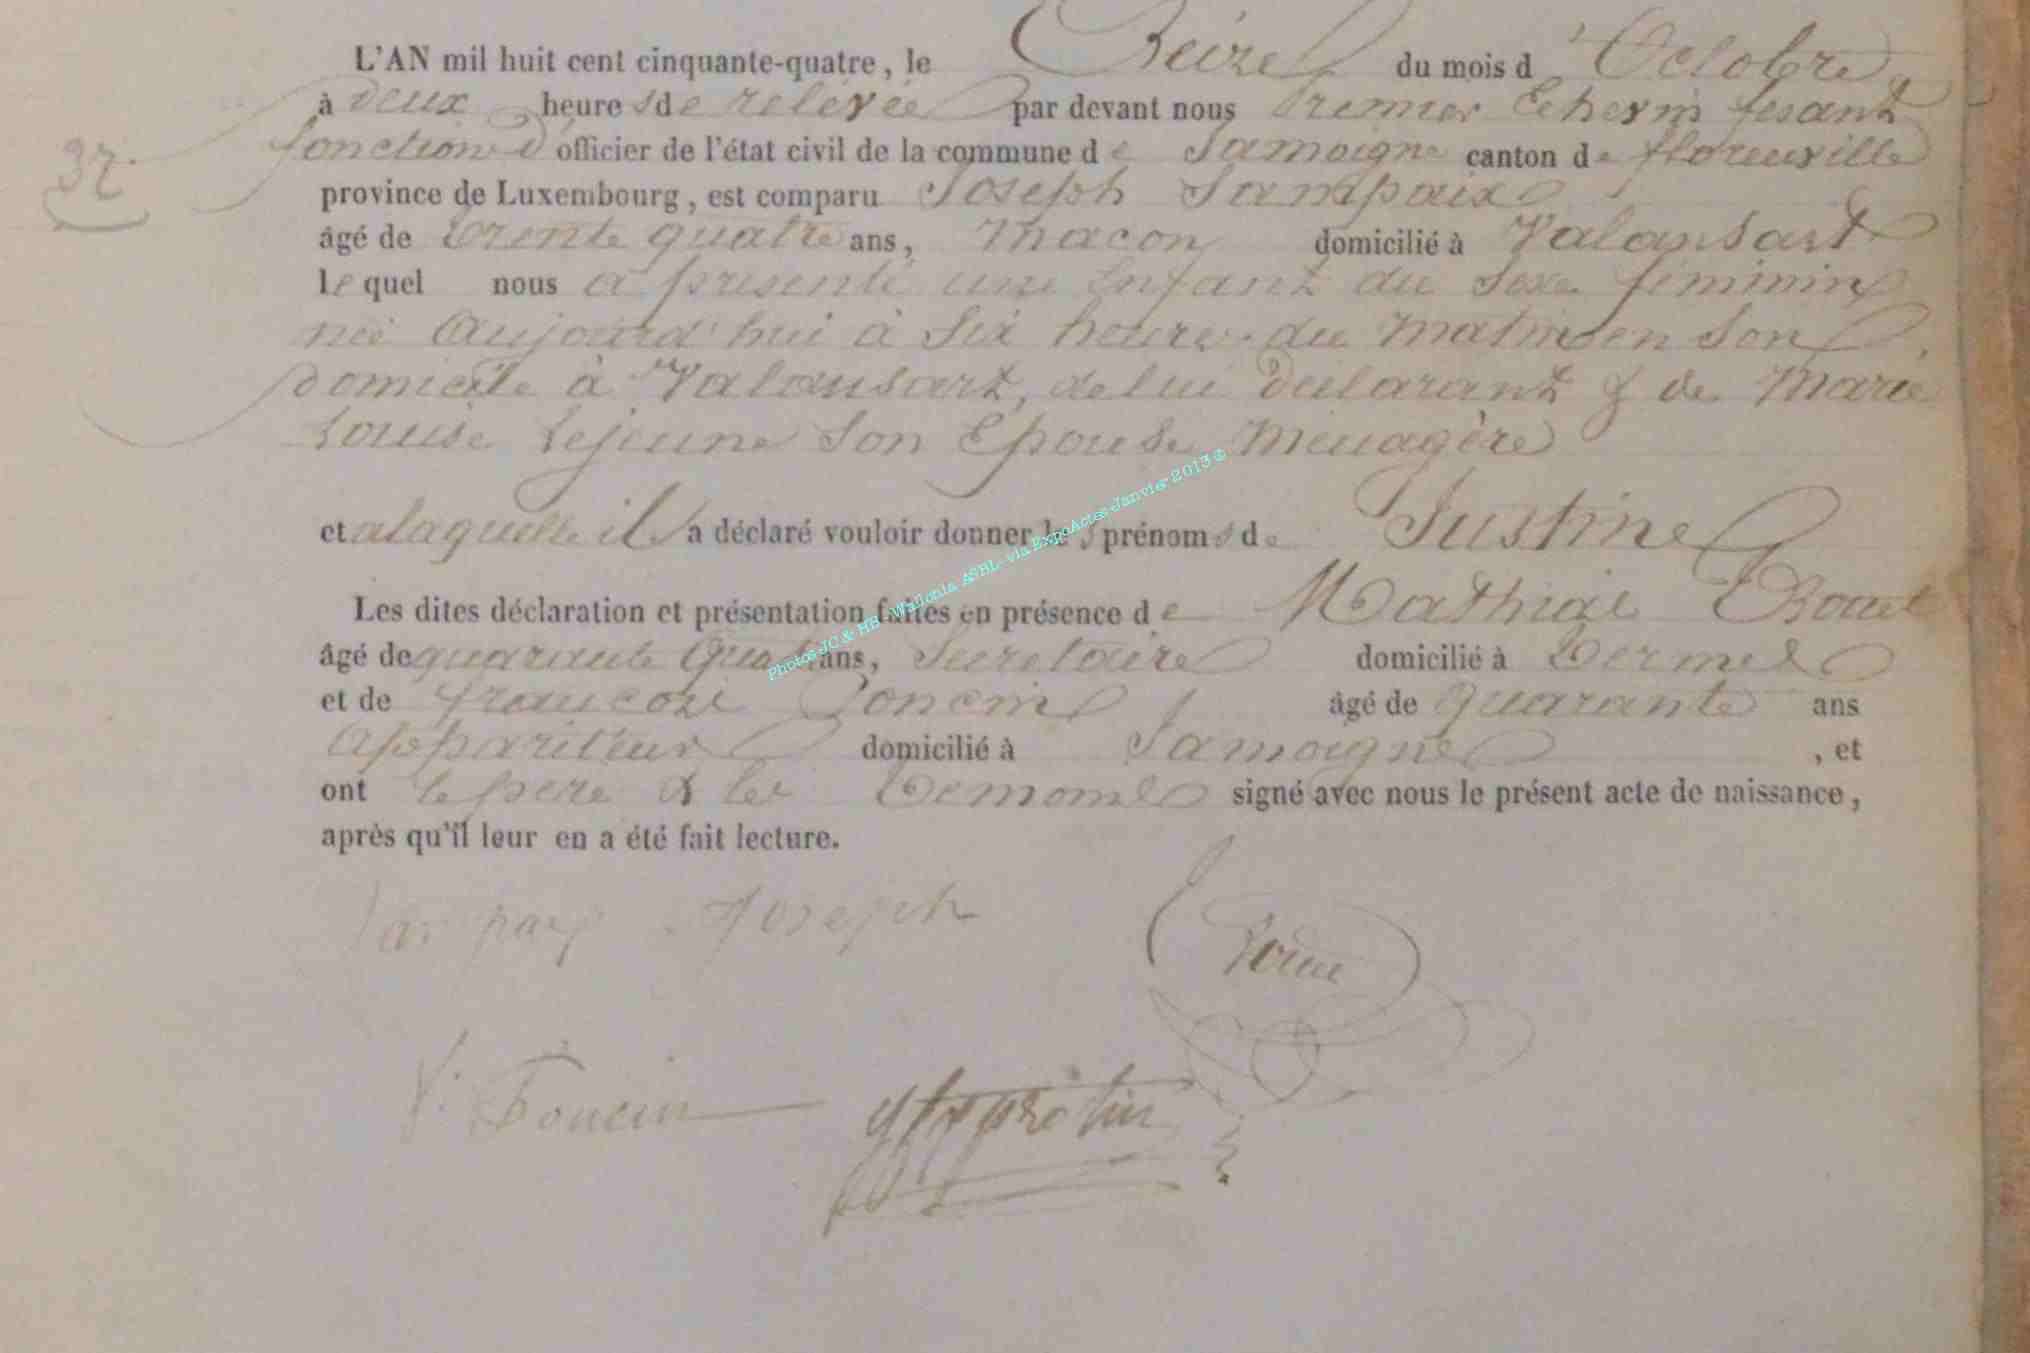 L'AN mil huit cent cinquante-quatre, le Treize du mois d'Octobre
à deux heures de relevée par devant nous Premier Echevin fesant
37. fonction d'officier de l'état civil de la commune de Jamoigne canton de florenville
province de Luxembourg, est comparu Joseph Sampaix
âgé de trente quatre ans, Macon domicilié à Valansart
lequel nous a presenté une Enfant du Sexe feminin
née Aujourd'hui à Six heures du Matin en Son
domicile à Valansart, de lui Declarant & de Marie
Louise Lejeune Son Epouse Menagère
et a laquelle il a déclaré vouloir donner les prénoms de Justine
Les dites déclaration et présentation faites en présence de Mathias
âgé de quarante Quatre ans, Secretaire domicilié à Termes
et de françois Poncin âgé de quarante ans
Appariteur domicilié à Jamoigne, et
ont le père & les Temoins signé avec nous le présent acte de naissance,
après qu'il leur en a été fait lecture.
Joseph
Poncin
Photos JC & HB Wallonia ASBL - via ExpoActes Janvier 2013 ©